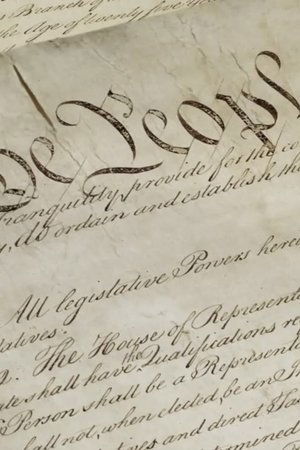 Branch of
the Age of twenty five Y
We People
Tranquility, provide for the co
do ordain and establish this
All legislative Powers herei
tatives.
The House of Represent
ate shall have the Qualifications re
Person shall be a Representa
hall not, when elected, be an In
tives and direct Tax